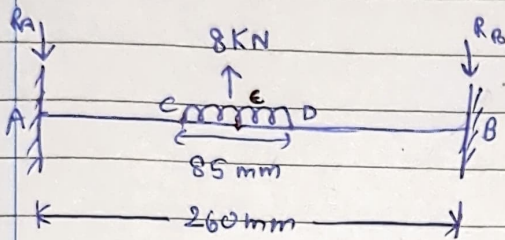 RA
8KN
RB
A
C
E
D
B
85mm
260mm